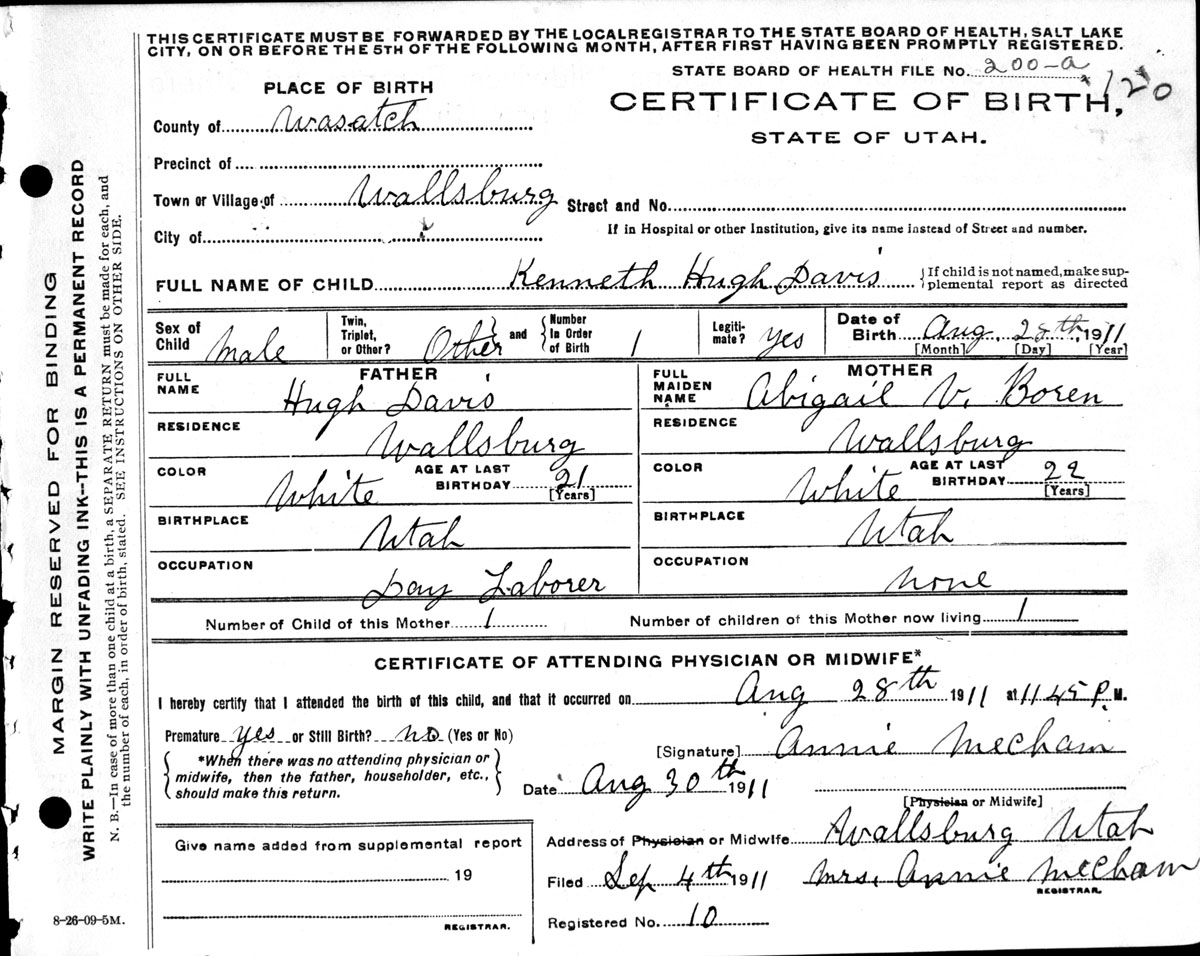 THIS CERTIFICATE MUST BE FORWARDED BY THE LOCALREGISTRAR TO THE STATE BOARD OF HEALTH, SALT LAKE
CITY, ON OR BEFORE THE 5TH OF THE FOLLOWING MONTH, AFTER FIRST HAVING BEEN PROMPTLY REGISTERED.
STATE BOARD OF HEALTH FILE No. 200-a
120
PLACE OF BIRTH
CERTIFICATE OF BIRTH,
STATE OF UTAH.
County of Wasatch
Precinct of
Town or Village of Wallsburg Street and No.
City of If in Hospital or other Institution, give its name instead of Street and number.
FULL NAME OF CHILD Kenneth Hugh Davis {If child is not named, make sup-
plemental report as directed
Sex of Child Male Twin, Triplet, or Other? Other and Number In Order of Birth 1 Legiti-mate? yes Date of Birth Aug, 28th, 1911
[Month] [Day] [Year]
FATHER
FULL NAME Hugh Davis
RESIDENCE Wallsburg
COLOR White AGE AT LAST BIRTHDAY 21 [Years]
BIRTHPLACE Utah
OCCUPATION Day Laborer
MOTHER
FULL MAIDEN NAME Abigail V. Boren
RESIDENCE Wallsburg
COLOR White AGE AT LAST BIRTHDAY 22 [Years]
BIRTHPLACE Utah
OCCUPATION None
Number of Child of this Mother 1 Number of children of this Mother now living 1
CERTIFICATE OF ATTENDING PHYSICIAN OR MIDWIFE*
I hereby certify that I attended the birth of this child, and that it occurred on Aug 28th 1911 at 11 45 P. M.
Premature yes or Still Birth? no (Yes or No)
[Signature] Annie Mecham
*When there was no attending physician or
midwife, then the father, householder, etc.,
should make this return.
Date Aug 30th 1911
[Physician or Midwife]
Address of Physician or Midwife Wallsburg Utah
Filed Sep 4th 1911 Mrs. Annie Mecham
REGISTRAR.
Registered No. 10
Give name added from supplemental report
19
REGISTRAR.
8-26-09-5M.
MARGIN RESERVED FOR BINDING
WRITE PLAINLY WITH UNFADING INK--THIS IS A PERMANENT RECORD
N. B.—In case of more than one child at a birth, a SEPARATE RETURN must be made for each, and
the number of each, in order of birth, stated. SEE INSTRUCTIONS ON OTHER SIDE.